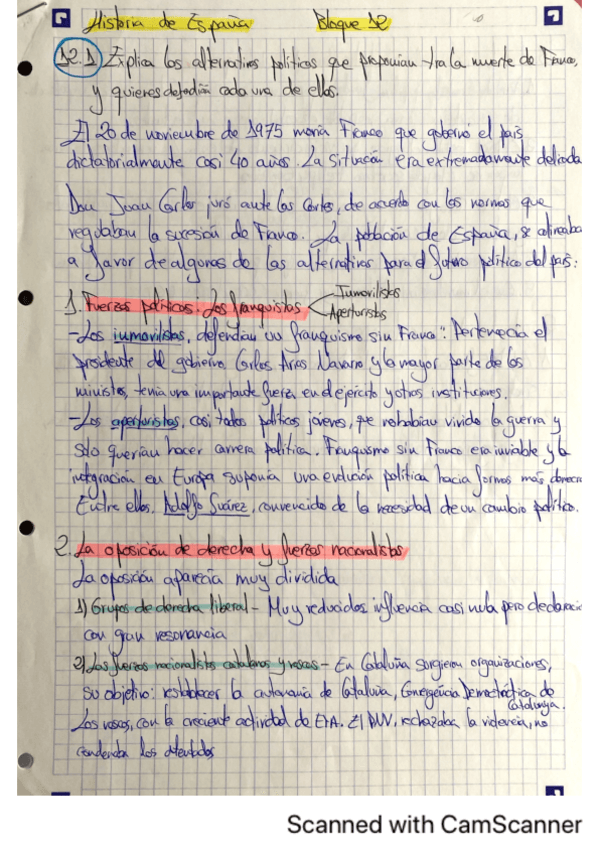 Historia de España Bloque 12
12.1 Explica las alternativas políticas que proponian tra la muerte de Franco,
y quienes defendían cada una de ellas.
El 20 de noviembre de 1975 moria Franco que gobernó el país
dictatorialmente casi 40 años. La situación era extremadamente delicada
Don Juan Carlos juró ante las Cortes, de acuerdo con las normas que
regulaban la sucesión de Franco. La población de España, se alineaba
a favor de algunas de las alternativas para el futuro político del país:
1. Fuerzas políticas: Los franquistas
Inmovilistas
Aperturistas
- Los inmovilistas, defendian un franquismo sin Franco". Pertenecia el
presidente del gobierno Carlos Arias Navarro y la mayor parte de los
ministros, tenia una importante fuerza en el ejército y otras instituciones.
- Los aperturistas, casi todos políticos jóvenes, que no habian vivido la guerra y
sólo querian hacer carrera política. Franquismo sin Franco era inviable y la
integración en Europa suponia una evolución política hacia formas más democra
Entre ellos, Adolfo Suárez, convencido de la necesidad de un cambio político.
2. La oposición de derecha y fuerzas nacionalistas
La oposición aparecia muy dividida
1) Grupos de derecha liberal - Muy reducidos, influencia casi nula pero declaracio
con gran resonancia
2) Las fuerzas nacionalistas catalanas y vascas - En Cataluña surgieron organizaciones,
su objetivo: restablecer la autonomia de Cataluña, Convergència Democràtica de
Catalunya.
Los vascos, con la creciente actividad de ETA. El PNV, rechazaba la violencia, no
condenaba los atentados
Scanned with CamScanner